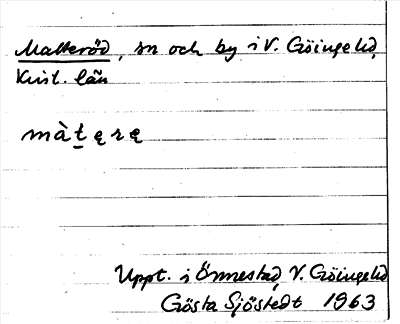 Matteröd, sn och by i V. Göinge hd,
Krist. län
màt̲ęrę
Uppt. i Önnestad, V. Göinge hd
Gösta Sjöstedt 1963